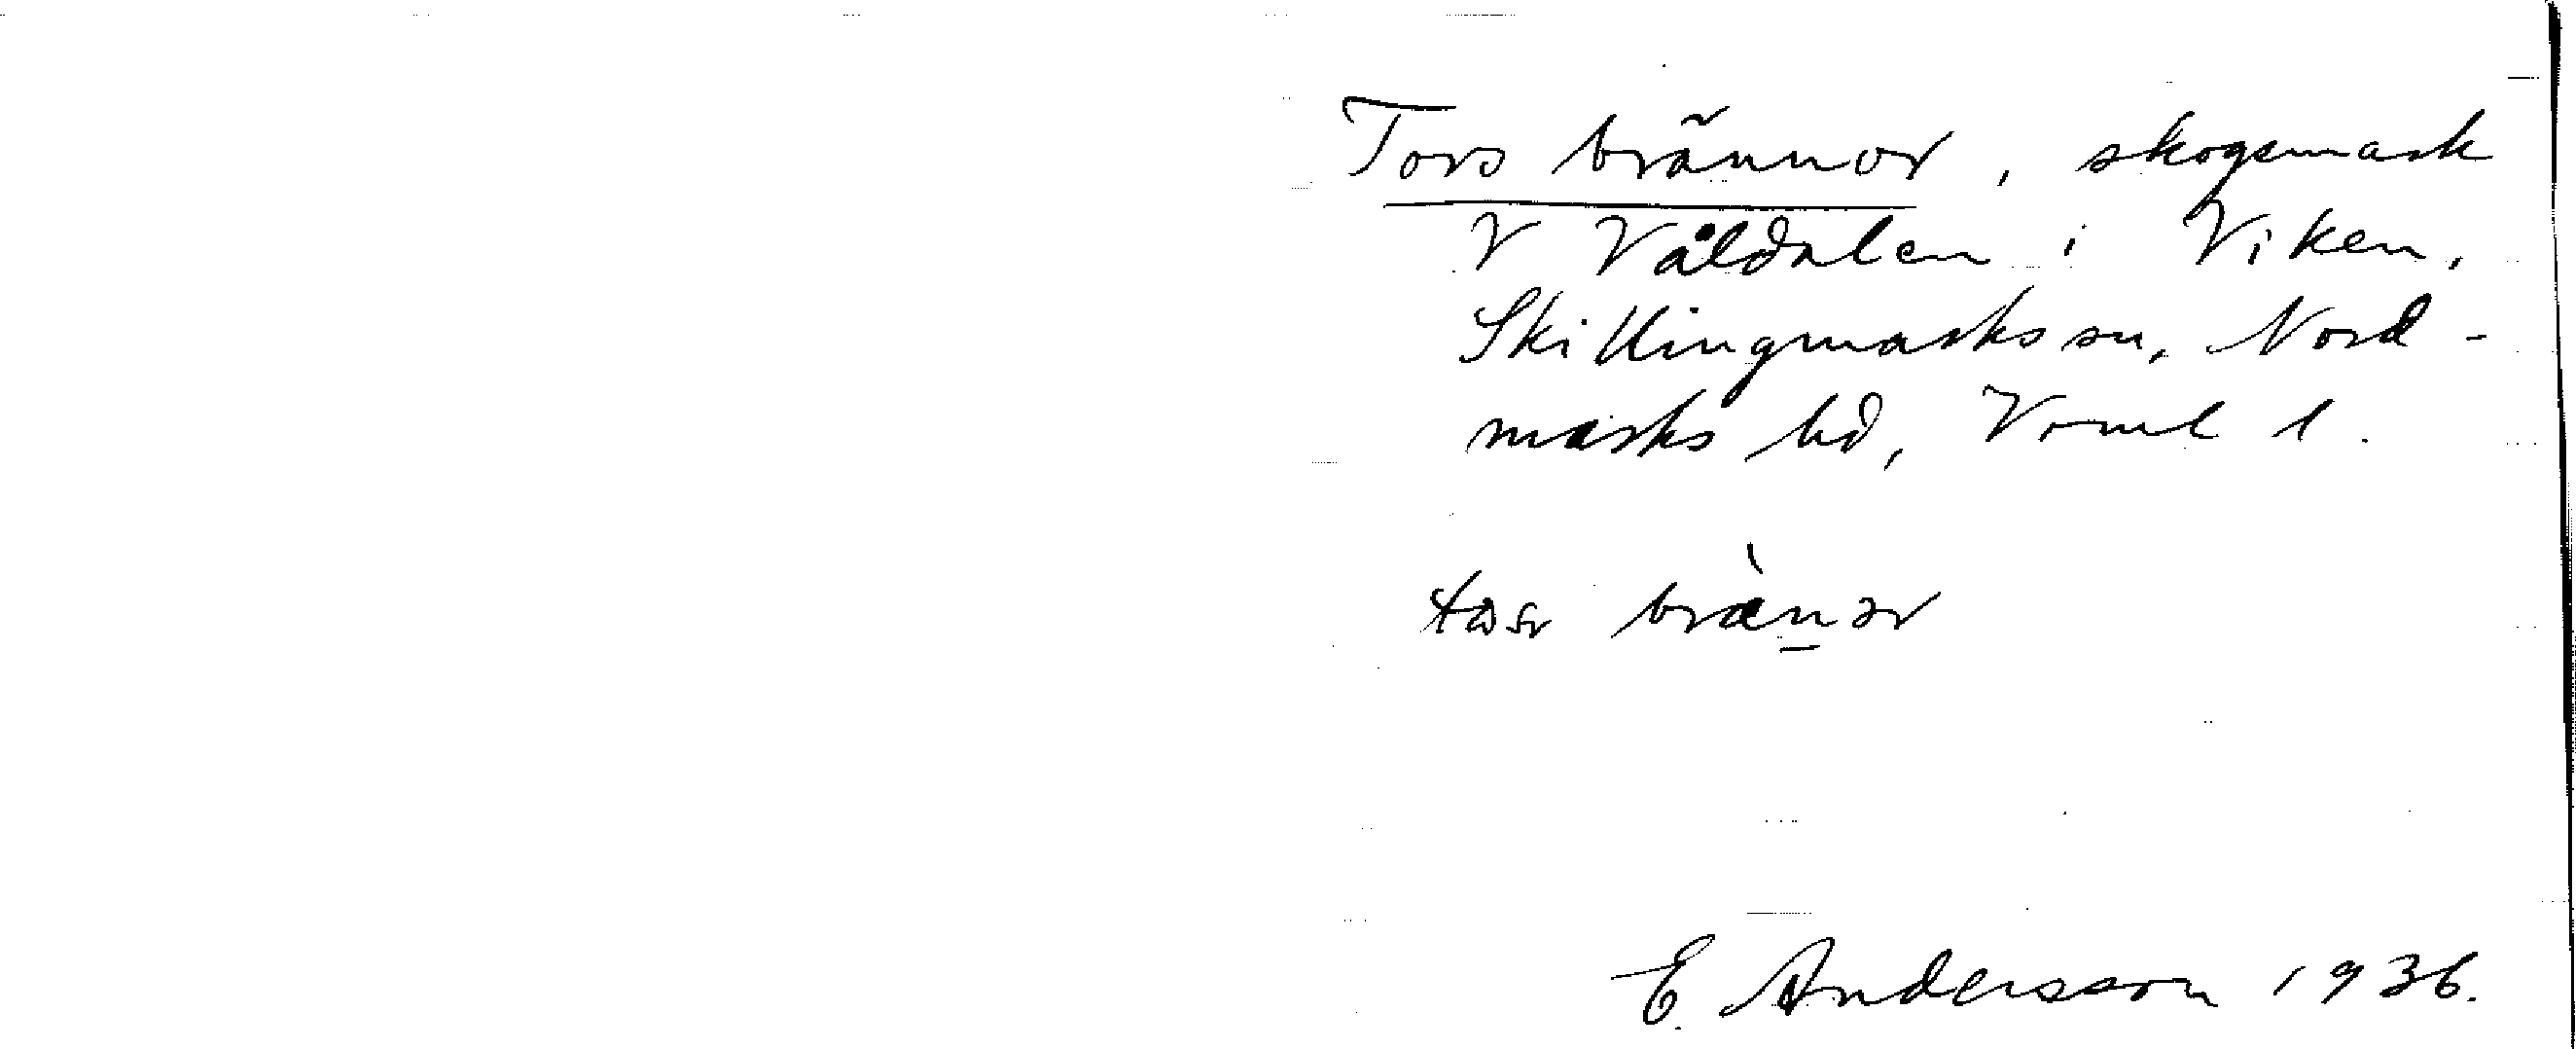 Tors brännor, skogsmark
V Våldalen i Viken,
Skillingmarks sn, Nord-
marks hd, Vrml l.
bränar
E. Andersson 1936.